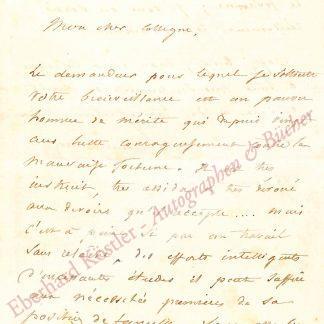 Mon cher Collègue,
Le demandeur pour lequel je sollicite
votre bienveillance est un pauvre
homme de mérite qui depuis dix
ans lutte courageusement contre la
mauvaise fortune. Il est très
instruit, très assidu, très dévoué
aux devoirs qu'il accepte.... mais
c'est à peine si par un travail
sans relâche, des efforts intelligents
d'incessantes études il peut suffire
aux nécessités premières de sa
position de famille.
Eberhard Köstler - Autographen & Bücher